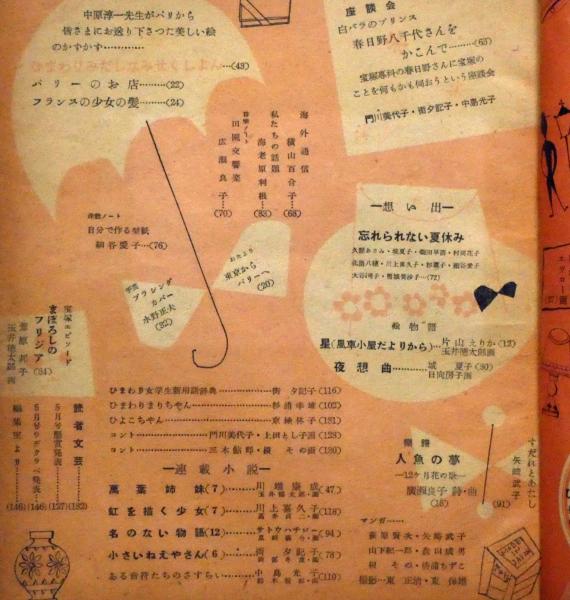 座談会
白バラのプリンス
春日野八千代さんを
かこんで………(63)
宝塚専科の春日野さんに宝塚の
ことを何もかも伺おうという座談会
門川美代子・街夕記子・中島光子
中原淳一先生がパリから
皆さまにお送り下さつた美しい絵
のかずかず…………
…(43)
パリーのお店………(22)
フランスの少女の髪………(24)
海外通信
横山百合子…(68)
私たちの話題
海老原利根…(83)
音楽ノート
田園交響楽
広瀬良子…(70)
洋裁ノート
自分で作る型紙
細谷愛子…(76)
おたより
東京から
パリーへ
(20)
手芸
ブラシング
カバー
水野正夫
(82)
―想い出―
忘れられない夏休み
…(72)
絵物語
星(風車小屋だよりから)…片山えりか(12)
玉井徳太郎画
夜想曲………城夏子(30)
日向房子画
宝塚エピソード
まぼろしの
フリジア
葦原邦子
玉井徳太郎画
(84)
ひまわり女学生新用語辞典………街夕記子(116)
ひまわりまりちやん………杉浦幸雄(102)
ひよこちやん………京緑林子(131)
コント………門川美代子・上田とし子画(128)
コント………三木鮎郎・榎その画(130)
読者文芸
(182)
5月号懸賞発表…(127)
5月号ウデクラベ発表…(146)
編集室より…(146)
―連載小説―
萬葉姉妹(7)………川端康成(47)
玉井徳太郎・画
虹を描く少女(7)………川上喜久子(118)
名のない物語(12)………サトウハチロー(94)
小さいねえやさん(6)………街夕記子(78)
ある音符たちのさすらい………中島光子(110)
楽譜
人魚の夢
―12ケ月花の歌―
廣瀬良子 詩・曲
(18)
すだれとあたし
矢崎武子
(91)
マンガ……
萩原賢次・矢崎武子